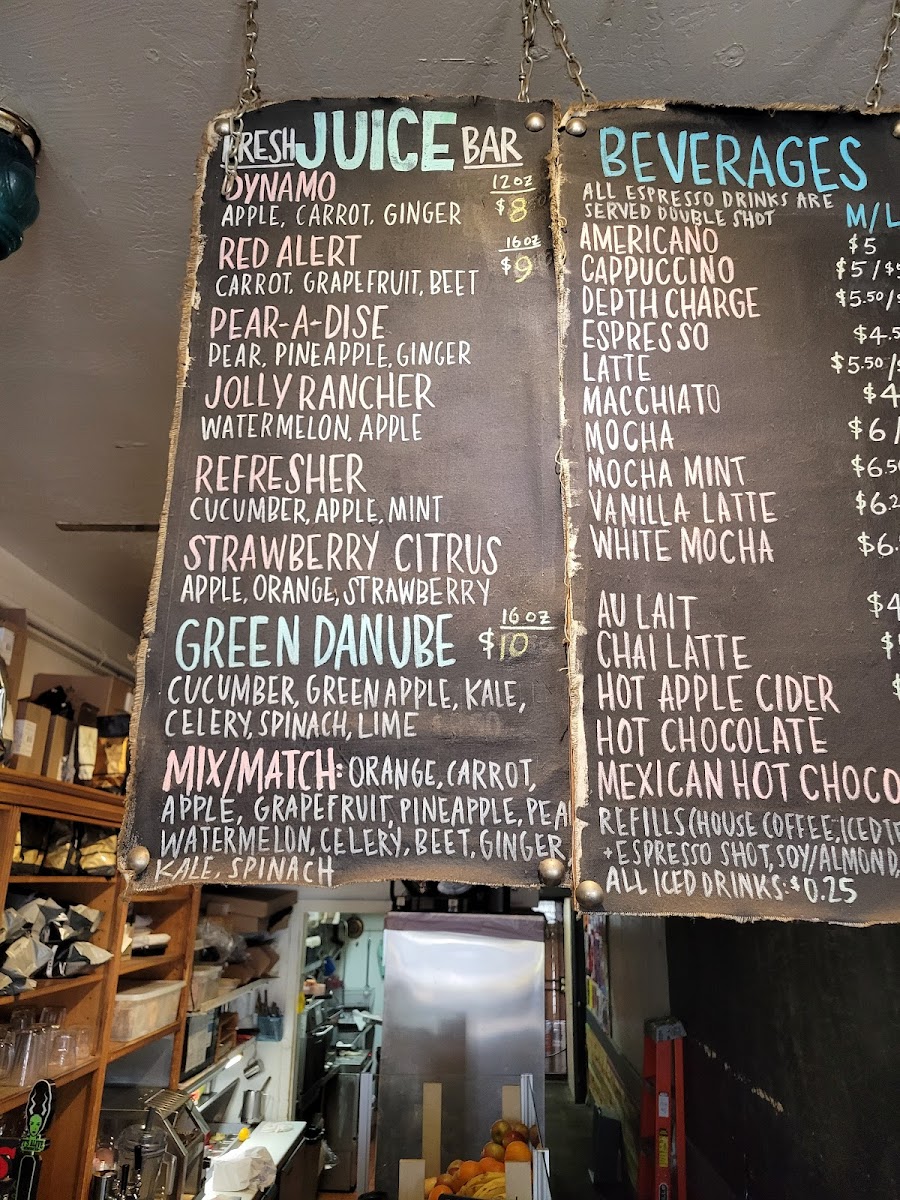 FRESH JUICE BAR
DYNAMO 12 OZ
APPLE, CARROT, GINGER $8
RED ALERT 16 OZ
CARROT, GRAPEFRUIT, BEET $9
PEAR-A-DISE
PEAR, PINEAPPLE, GINGER
JOLLY RANCHER
WATERMELON, APPLE
REFRESHER
CUCUMBER, APPLE, MINT
STRAWBERRY CITRUS
APPLE, ORANGE, STRAWBERRY
GREEN DANUBE 16 OZ $10
CUCUMBER, GREEN APPLE, KALE,
CELERY, SPINACH, LIME
MIX/MATCH: ORANGE, CARROT,
APPLE, GRAPEFRUIT, PINEAPPLE, PEA
WATERMELON, CELERY, BEET, GINGER
KALE, SPINACH
BEVERAGES
ALL ESPRESSO DRINKS ARE
SERVED DOUBLE SHOT M/L
AMERICANO $5
CAPPUCCINO $5/$
DEPTH CHARGE $5.50/
ESPRESSO $4.5
LATTE $5.50/
MACCHIATO $4
MOCHA $6/
MOCHA MINT $6.50
VANILLA LATTE $6.2
WHITE MOCHA $6.
AU LAIT $4
CHAI LATTE $
HOT APPLE CIDER $
HOT CHOCOLATE
MEXICAN HOT CHOCO
REFILLS (HOUSE COFFEE, ICED TE
+ESPRESSO SHOT, SOY/ALMOND,
ALL ICED DRINKS: $0.25